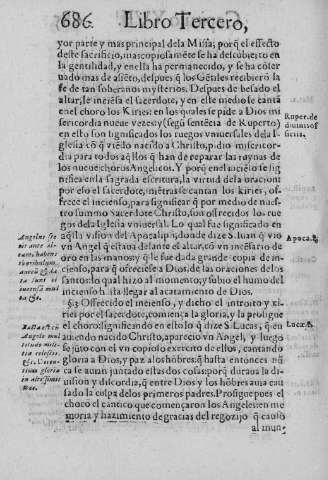 686. Libro Tercero,
yor parte y mas principal dela Missa, porq̃ el effecto
deste sacrificio, mas copiosamẽte se ha descubierto en
la gentilidad, y en ella ha permanecido, y se ha cõser
uado mas de asiẽto, despues q̃ los Gẽtiles recibierõ la
fe de tan soberanos mysterios. Despues de besado el
altar, le inciẽsa el sacerdote, y en este medio se cantã
en el choro los Kiries: en los quales se pide a Dios mi
sericordia nueue vezes y (segũ sentẽcia de Ruperto)
en esto son significados los ruegos vniuersales dela I
glesia cõ q̃ viẽdo nacido a Christo, pidio misericor-
dia para todos aq̃llos q̃ han de reparar las ruynas de
los nueue choros Angelicos. Y porq̃ en el inciẽso se sig
nifica en la sagrada escritura, la virtud dela oracion:
por esso el sacerdote, miẽtras se cantan los kiries, os-
frece el incienso, para significar q̃ por medio de nues-
tro summo sacerdote Christo, son offrecidos los rue-
gos dela Iglesia vniuersal. Lo qual fue significado en
aq̃lla visiõ del Apocalipsi, donde dize S. Iuan q̃ vio
vn Angel q̃ estaua delante el altar, cõ vn incẽsario de
oro en las manos: y q̃ le fue dada grande copia de in-
cienso, para q̃ offreciesse a Dios, de las oraciones delos
santos: lo qual hizo al momento, y subio el humo del
incienso hasta llegar al acatamiento de Dios.
§.3 Offrecido el incienso, y dicho el introito y xi-
ries por el sacerdote, comiença la gloria, y la prosigue
el choro: significando en esto lo q̃ dize S. Lucas, q̃ en
auiendo nacido Christo, aparecio vn Angel, y luego
se jũto con el vn copioso exercito de ellos, cantando
gloria a Dios, y paz alos hõbres: q̃ hasta entonces nũ
ca se auian juntado estas dos cosas: porq̃ duraua la di-
uision y discordia, q̃ entre Dios y los hõbres auia cau
sado la culpa delos primeros padres. Prosigue pues el
choro el cantico que començaron los Angeles: en me
moria y hazimiento de gracias del regozijo q̃ causò
al mun-
Ruper. de
diuinis of
ficiis.
Apoca. 8.
Luc. 2.
Angelus ste
tit ante al-
tare, habens
thuribulum
aureũ & da
ta sunt ei
incensa mul
ta &c.
Facta est cũ
Angelo mul
titudo mili-
tiæ celestis.
&c. Cicen-
tium gloria
en altissimis
Deo.